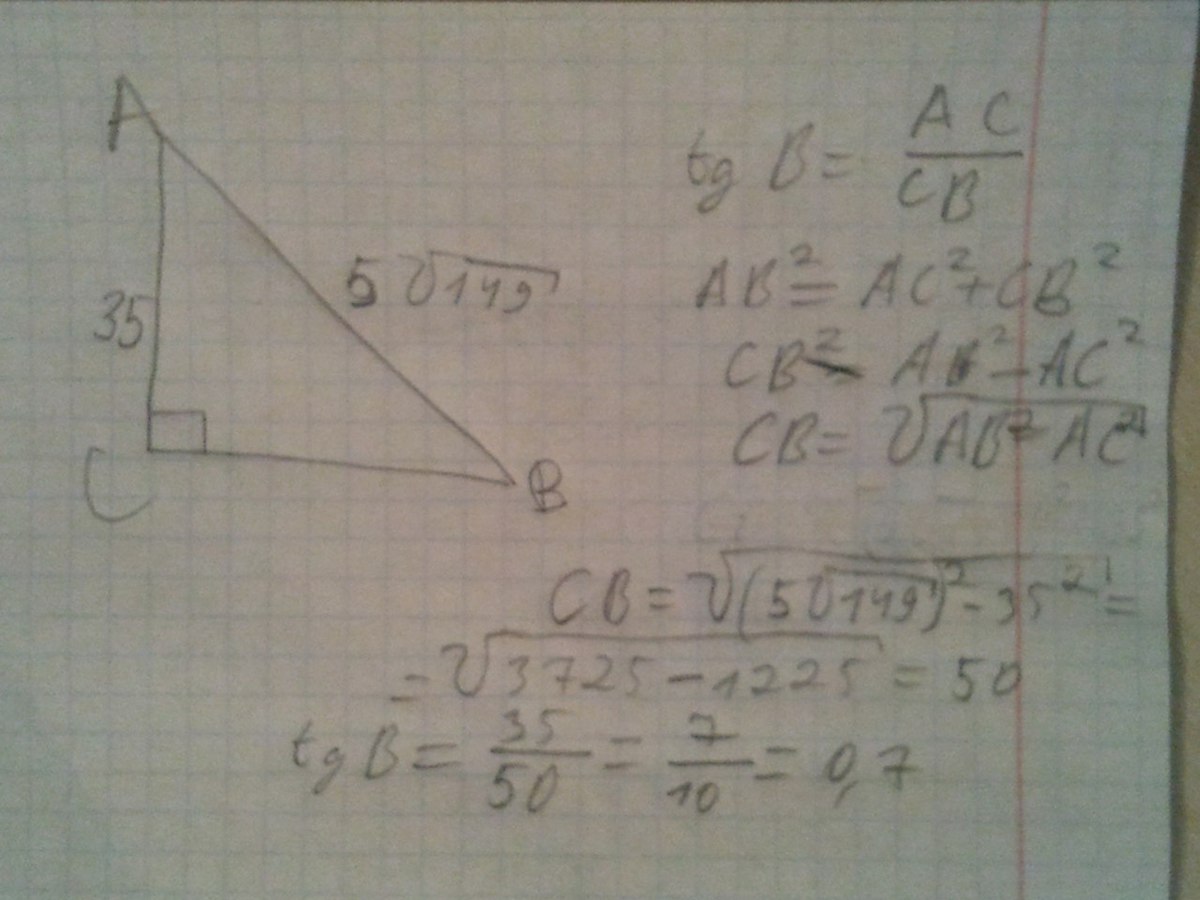 A
35
5√149
C
B
tg B = AC/CB
AB² = AC² + CB²
CB² = AB² - AC²
CB = √AB² - AC²
CB = √(5√149)² - 35² =
= √3725 - 1225 = 50
tg B = 35/50 = 7/10 = 0,7